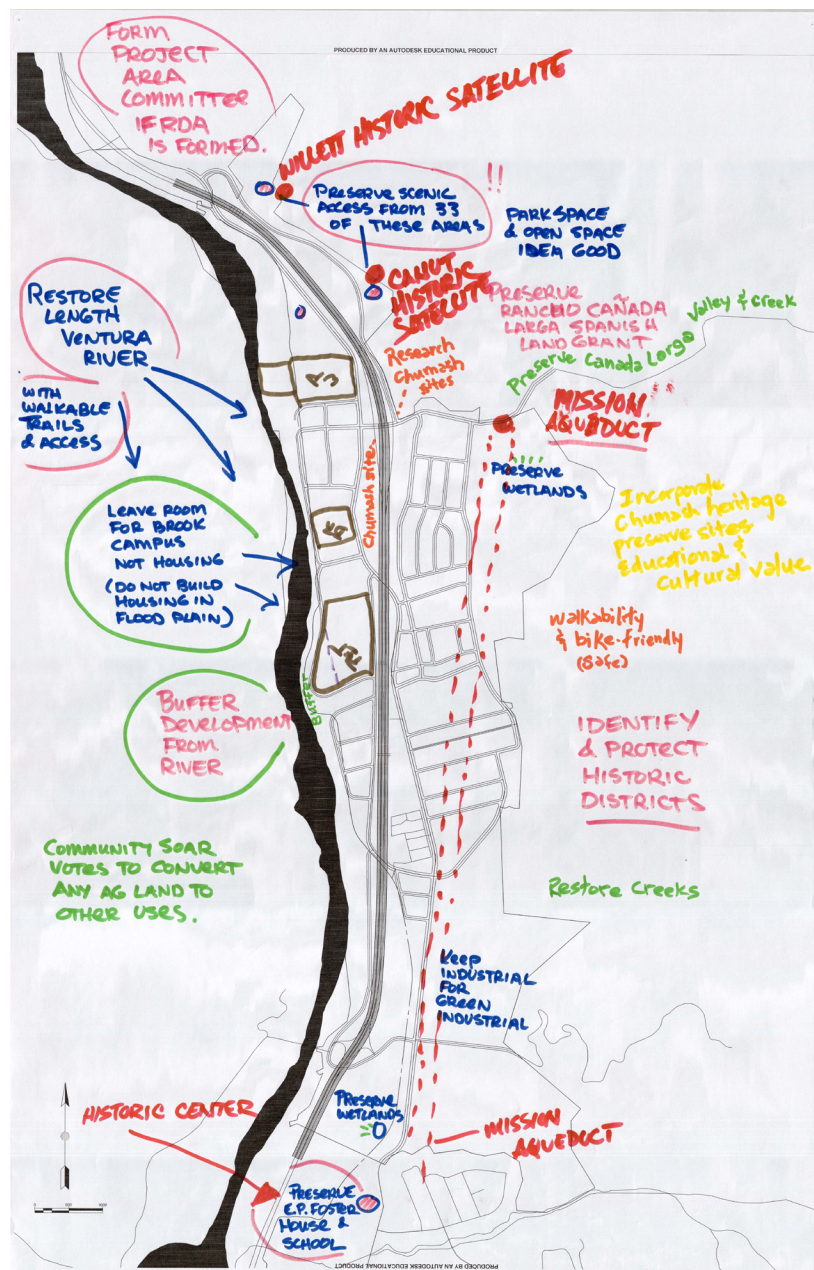 PRODUCED BY AN AUTODESK EDUCATIONAL PRODUCT
FORM
PROJECT
AREA
COMMITTEE
IF RDA
IS FORMED.
WILLETT HISTORIC SATELLITE
PRESERVE SCENIC
ACCESS FROM 33
OF THESE AREAS
!!
PARK SPACE
& OPEN SPACE
IDEA GOOD
CANUT
HISTORIC
SATELLITE
PRESERVE
RANCHO CAÑADA
LARGA SPANISH
LAND GRANT
Preserve Canada Larga Valley & Creek
RESTORE
LENGTH
VENTURA
RIVER
WITH
WALKABLE
TRAILS
& ACCESS
Research
Chumash
sites
MISSION
AQUEDUCT
PRESERVE
WETLANDS
Chumash site
LEAVE ROOM
FOR BROOK
CAMPUS
NOT HOUSING
(DO NOT BUILD
HOUSING IN
FLOOD PLAIN)
Incorporate
Chumash heritage
preserve sites
Educational &
Cultural Value
walkability
& bike-friendly
(safe)
Buffer
BUFFER
DEVELOPMENT
FROM
RIVER
IDENTIFY
& PROTECT
HISTORIC
DISTRICTS
COMMUNITY SOAR
VOTES TO CONVERT
ANY AG LAND TO
OTHER USES.
Restore Creeks
Keep
INDUSTRIAL
FOR
GREEN
INDUSTRIAL
HISTORIC CENTER
PRESERVE
WETLANDS
MISSION
AQUEDUCT
PRESERVE
E.P. FOSTER
HOUSE &
SCHOOL
PRODUCED BY AN AUTODESK EDUCATIONAL PRODUCT